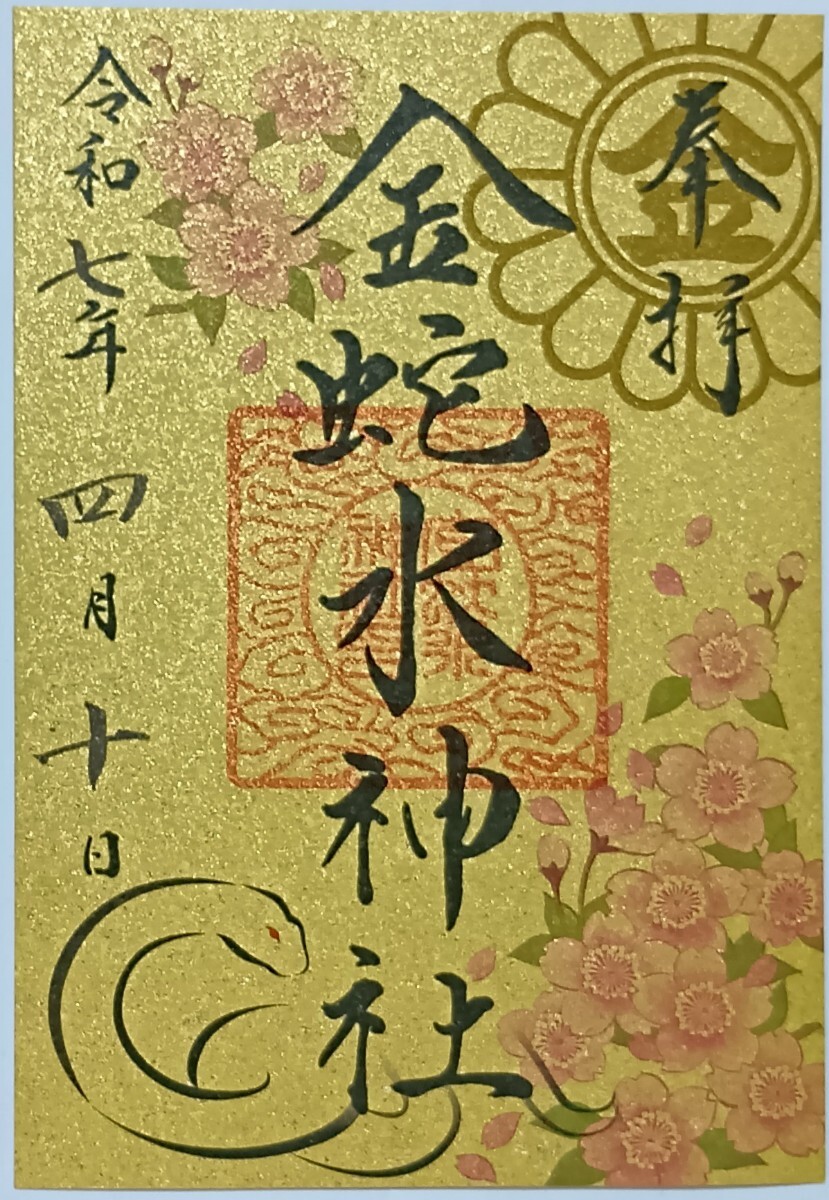 奉拝
金
金蛇水神社
令和七年 四月 十日